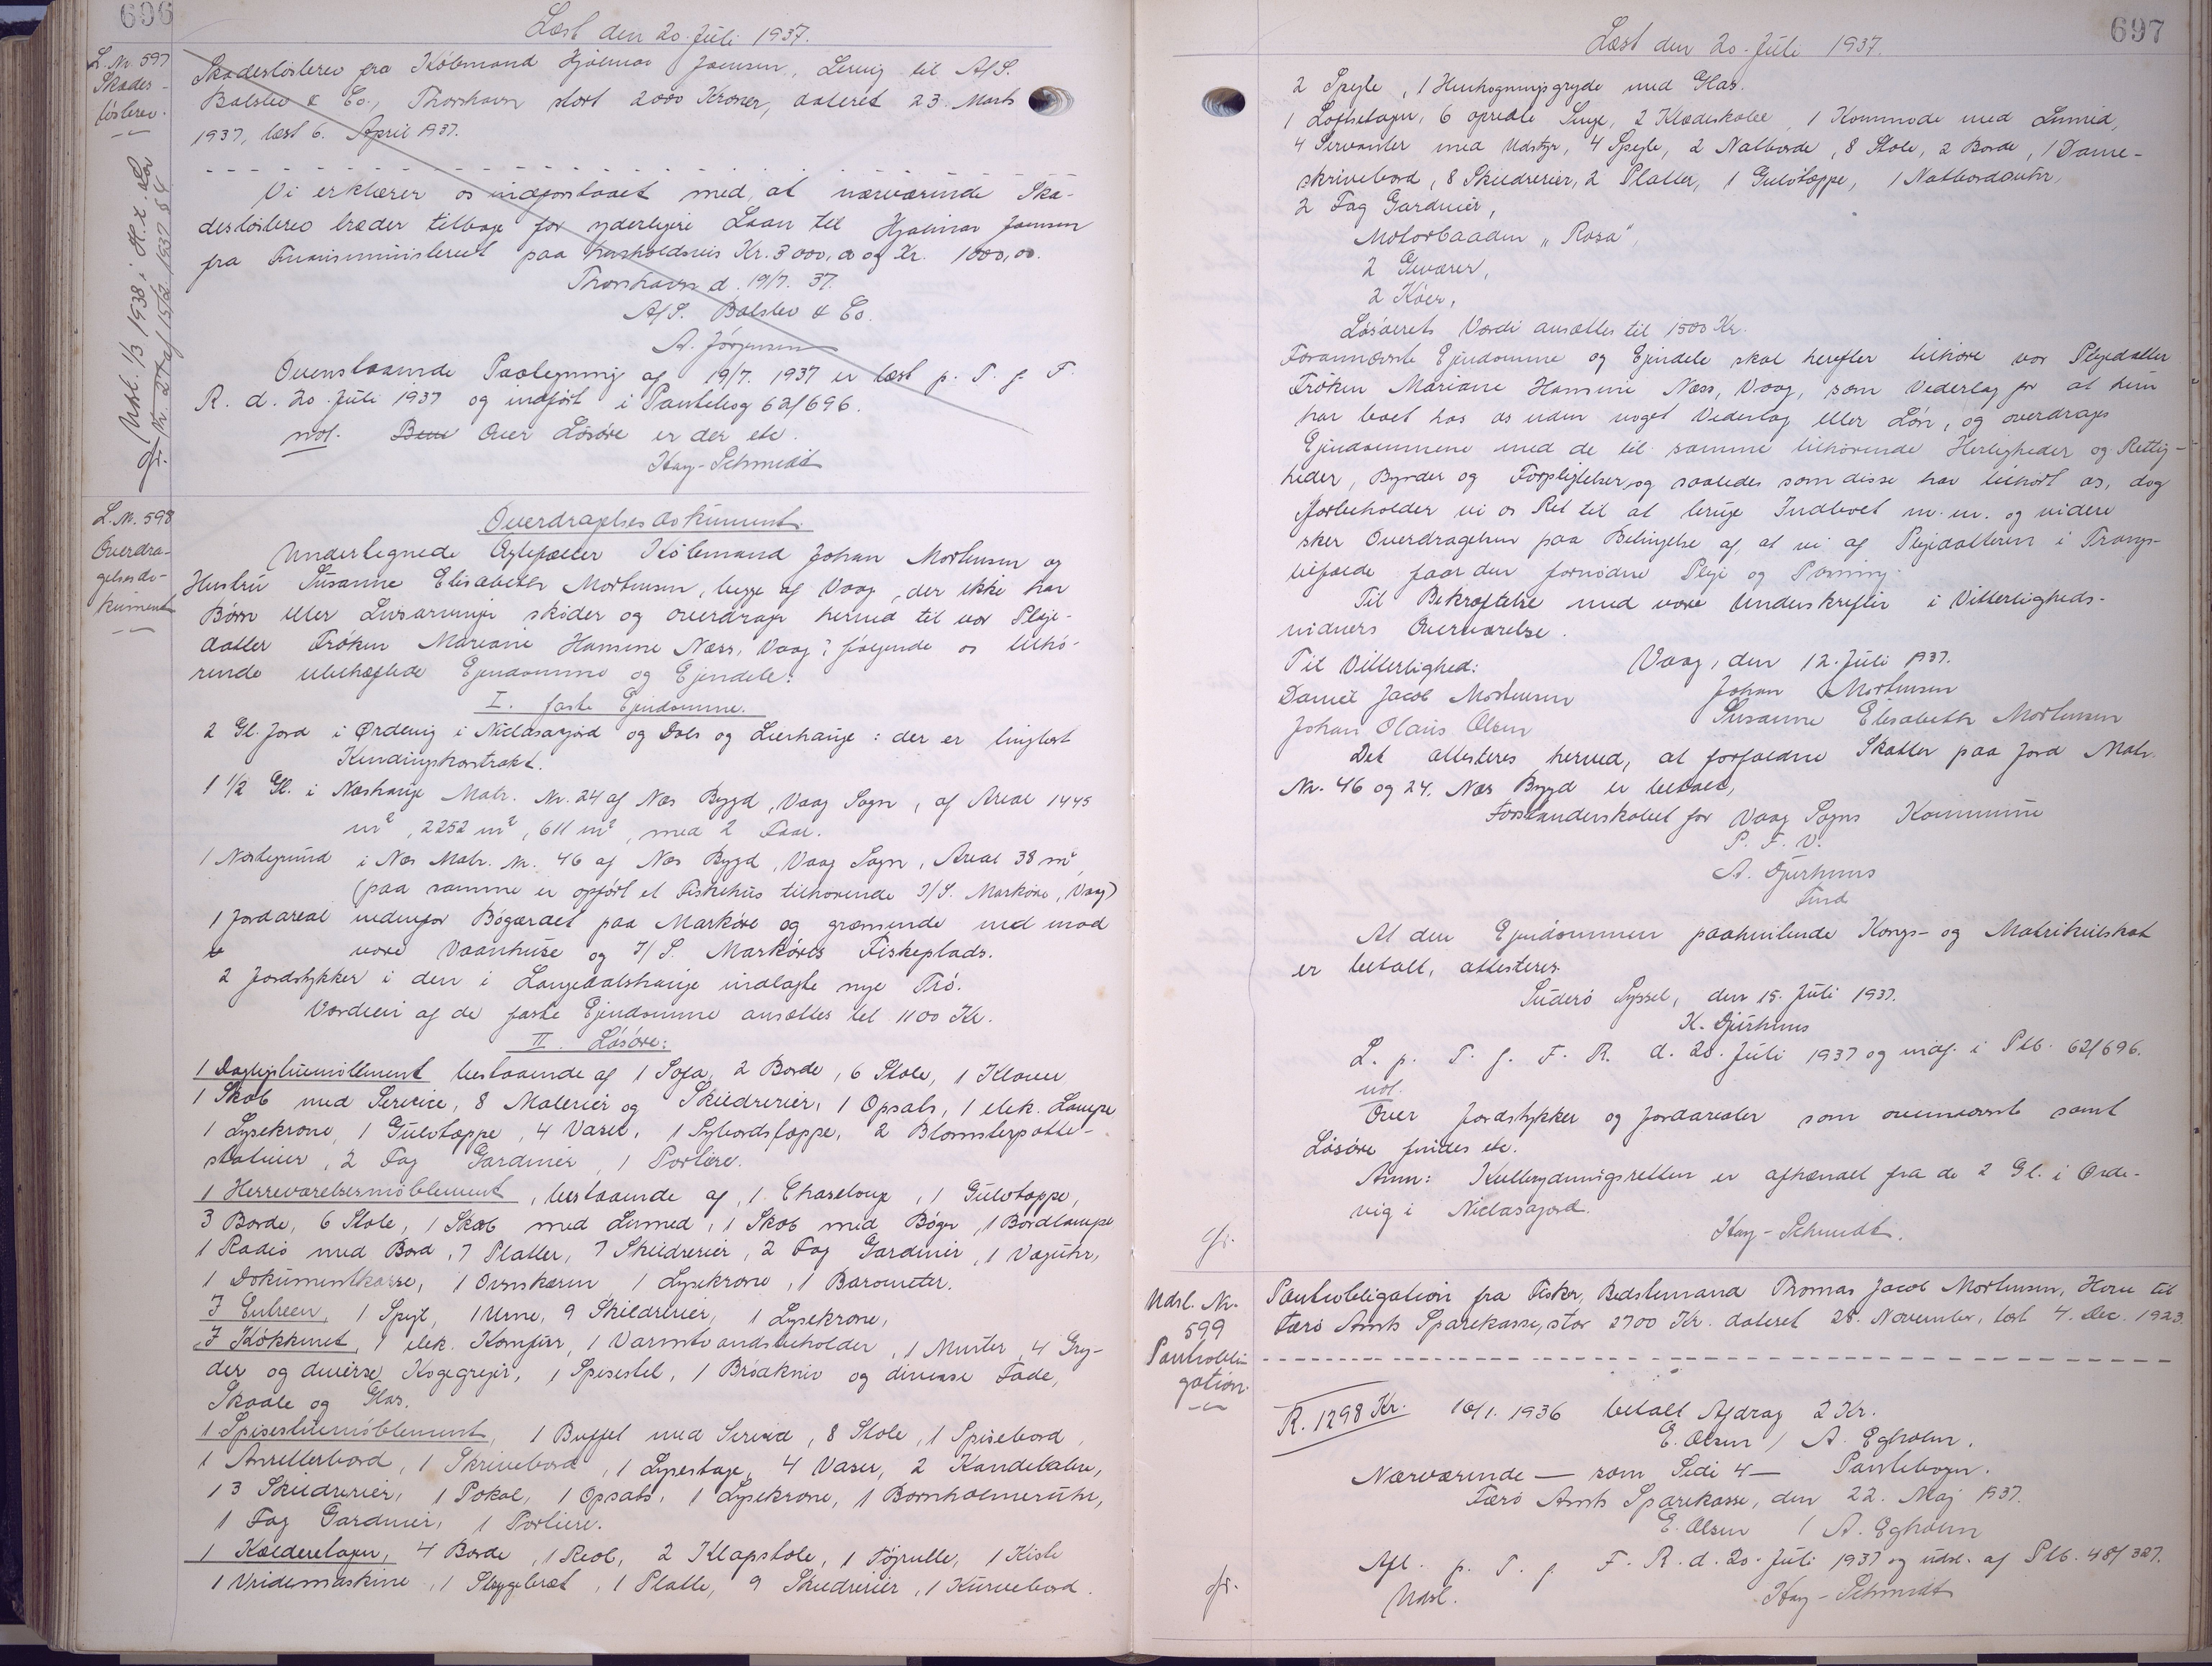 696
Læst den 20. Juli 1937.
L. Nr. 597
Skades-
løsbrev.
Skadesløsbrev fra Købmand Hjalmar Joensen, Lervig til A/S.
Balslev & Co., Thorshavn stort 2000 Kroner, dateret 23. Marts
1937, læst 6. April 1937.
Vi erklærer os indforstaaet med, at nærværende Ska-
desløsbrev træder tilbage for yderligere Laan til Hjalmar Joensen
fra Finansministeriet paa henholdsvis Kr. 3000,00 og Kr. 1000,00.
Thorshavn d. 19/7. 37.
A/S. Balslev & Co.
A. Jörgensen
Ovenstaaende Paategning af 19/7. 1937 er læst p. T. f. F.
R. d. 20. Juli 1937 og indført i Pantebog 62/696.
not. Over Løsøre er der etc.
Hay-Schmidt
Udsl. 1/3 1938 i H. t. Lov
Nr. 27 af 15/2 1937 § 4
L. Nr. 598
Overdra-
gelsesdo-
kument
Overdragelsesdokument.
Undertegnede Ægtefæller Købmand Johan Mortensen og
Hustru Susanne Elisabeth Mortensen, begge af Vaag, der ikke har
Børn eller Livsarvinger skøder og overdrager herved til vor Pleje-
datter Frøken Mariane Hansine Næss, Vaag: følgende os tilhø-
rende ubehæftede Ejendomme og Ejendele:
I. faste Ejendomme.
2 Gl. Jord i Ørdevig i Niclasarjørd og Dals og Lierhauge: der er tinglæst
Kendingskontrakt.
1 1/2 Gl. i Næshauge Matr. Nr. 24 af Næs Bygd, Vaag Sogn, af Areal 1445
m², 2252 m², 611 m², med 2 Faar.
1 Næstegrund i Næs Matr. Nr. 46 af Næs Bygd, Vaag Sogn, Areal 38 m²,
(paa samme er opført et Fiskehus tilhørende I/S. Markøre, Vaag)
1 Jordareal nedenfor Bøgærdet paa Markøre og grænsende ned mod
vore Vaanhuse og I/S. Markøres Fiskeplads.
2 Jordstykker i den i Langedalshauge indlagte nye Trø.
Værdien af de faste Ejendomme ansættes til 1100 Kr.
II. Løsøre:
1 Dagligstuemøblement bestaaende af 1 Sofa, 2 Borde, 6 Stole, 1 Klaver
1 Skab med Service, 8 Malerier og Skilderier, 1 Opsats, 1 elek. Lampe
1 Lysekrone, 1 Gulvtæppe, 4 Vaser, 1 Sybordstæppe, 2 Blomsterpotte-
statuer, 2 Fag Gardiner, 1 Portiere.
1 Herreværelsesmøblement, bestaaende af, 1 Chaselong, 1 Gulvtæppe,
3 Borde, 6 Stole, 1 Skab med Linned, 1 Skab med Bøger, 1 Bordlampe
1 Radio med Bord, 7 Platter, 7 Skilderier, 2 Fag Gardiner, 1 Vægúhr,
1 Dokumentkasse, 1 Ovnskærm 1 Lysekrone, 1 Barometer.
I Entreen, 1 Spejl, 1 Urne, 9 Skilderier, 1 Lysekrone,
I Køkkenet, 1 elek. Komfur, 1 Varmtvandsbeholder, 1 4 Gry-
der og diverse Kogegrejer, 1 Spisestel, 1 Brødkniv og diverse Fade,
Skaale og Glas.
1 Spisestuemøblement, 1 Buffet med Service, 8 Stole, 1 Spisebord,
1 Anretterbord, 1 Skrivebord, 1 Lysestage, 4 Vaser, 2 Kandelabre,
13 Skilderier, 1 Pokal, 1 Opsats, 1 Lysekrone, 1 Bornholmeruhr,
1 Fag Gardiner, 1 Portiere.
1 Kælderetagen, 4 Borde, 1 Reol, 2 Klapstole, 1 Tøjrulle, 1 Kiste
1 Vridemaskine, 1 Strygebræt, 1 Platte, 9 Skilderier, 1 Kurvebord.
697
Læst den 20. Juli 1937.
2 Spejle, 1 Henkogningsgryde med Glas.
1 Loftsetagen, 6 opredte Senge, 2 Klædeskabe, 1 Kommode med Linned,
4 Servanter med Udstyr, 4 Spejle, 2 Natborde, 8 Stole, 2 Borde, 1 Dame-
skrivebord, 8 Skilderier, 2 Platter, 1 Gulvtæppe, 1 Natbordsuhr,
2 Fag Gardiner,
Motorbaaden „Rosa",
2 Geværer,
2 Køer,
Løsørets Værdi ansættes til 1500 Kr.
Forannævnte Ejendomme og Ejendele skal herefter tilhøre vor Plejedatter
Frøken Mariane Hansine Næss, Vaag, som Vederlag for at hun
har boet hos os uden noget Vederlag eller Løn, og overdrages
Ejendommene med de til samme tilhørende Herligheder og Rettig-
heder, Byrder og Forpligtelser, og saaledes som disse har tilhørt os, dog
forbeholder vi os Ret til at bruge Indboet m. m. og videre
sker Overdragelsen paa Betingelse af, at vi af Plejedatteren i Trangs-
tilfælde faar den fornødne Pleje og Pasning.
Til Bekræftelse med vore Underskrifter i Vitterligheds-
vidners Overværelse.
Til Vitterlighed: Vaag, den 12. Juli 1937.
Daniel Jacob Mortensen Johan Mortensen
Johan Olaus Olsen Susanne Elisabeth Mortensen
Det attesteres herved, at forfaldne Skatter paa Jord Matr.
Nr. 46 og 24. Næs Bygd er betalt,
Forstanderskabet for Vaag Sogns Kommune
P. F. V.
A. Djurhuus
Fmd
At den Ejendommen paahvilende Konge- og Matrikulskat
er betalt, attesteres.
Suderø Syssel, den 15. Juli 1937.
K. Djurhuus
L. p. T. f. F. R. d. 20. Juli 1937 og indf. i Ptb. 62/696.
not.
Over Jordstykker og Jordarealer som ovennævnte samt
Løsøre findes etc.
Anm: Kulbrydningsretten er afhændet fra de 2 Gl. i Ørde-
vig i Niclasajord.
Hay-Schmidt.
Udsl. Nr.
599
Pantobli-
gation.
Pantobligation fra Fisker, Bedstemand Thomas Jacob Mortensen, Hove til
Færø Amts Sparekasse, stor 2700 Kr. dateret 28. November, læst 4. Dec. 1923.
R. 1298 Kr. 16/1. 1936 betalt Afdrag 2 Kr.
E. Olsen / A. Egholm.
Nærværende — som Side 4 — Pantebogen.
Færø Amts Sparekasse, den 22. Maj 1937.
E. Olsen / A. Egholm
Afl. p. T. f. F. R. d. 20. Juli 1937 og udsl. af Ptb. 48/327.
Udsl. Hay-Schmidt